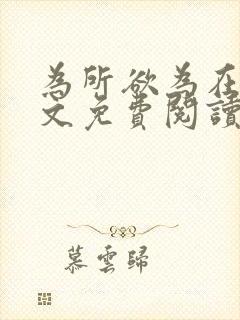 為所欲為在
文免費閱讀
慕雲歸